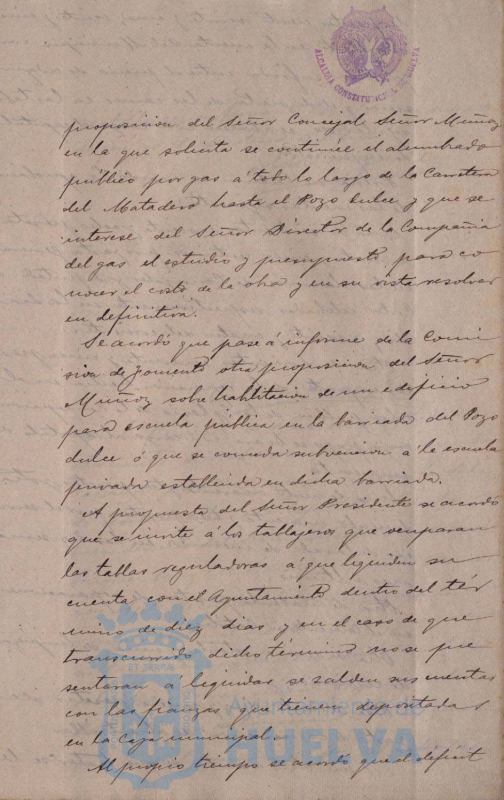 ALCALDIA CONSTITUCIONAL HUELVA
proposicion del Señor Concejal Señor Muñoz
en la que solicita se continúe el alumbrado
público por gas á todo lo largo de la Carretera
del Matadero hasta el Pozo dulce y que se
interese del Señor Director de la Compañia
del gas el estudio y presupuesto para co
nocer el costo de la obra y en su vista resolver
en definitiva.
Se acordó que pase á informe de la Comi
sion de Fomento otra proposicion del Señor
Muñoz sobre habilitacion de un edificio
para escuela pública en la barriada del Pozo
dulce ó que se conceda subvencion á la escuela
privada establecida en dicha barriada.
A propuesta del Señor Presidente se acordó
que se invite á los tablajeros que ocuparan
las tablas reguladoras á que liquiden su
cuenta con el Ayuntamiento dentro del tér
mino de diez dias y en el caso de que
transcurrido dicho término no se pre
sentaran á liquidar se salden sus cuentas
con las fianzas que tienen depositadas
en la Caja municipal.
Al propio tiempo se acordó que el déficit
Ayuntamiento de
HUELVA